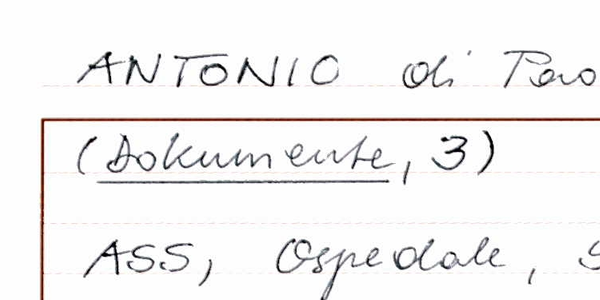 ANTONIO di Pao
(Dokumente, 3)
ASS, Ospedale, S